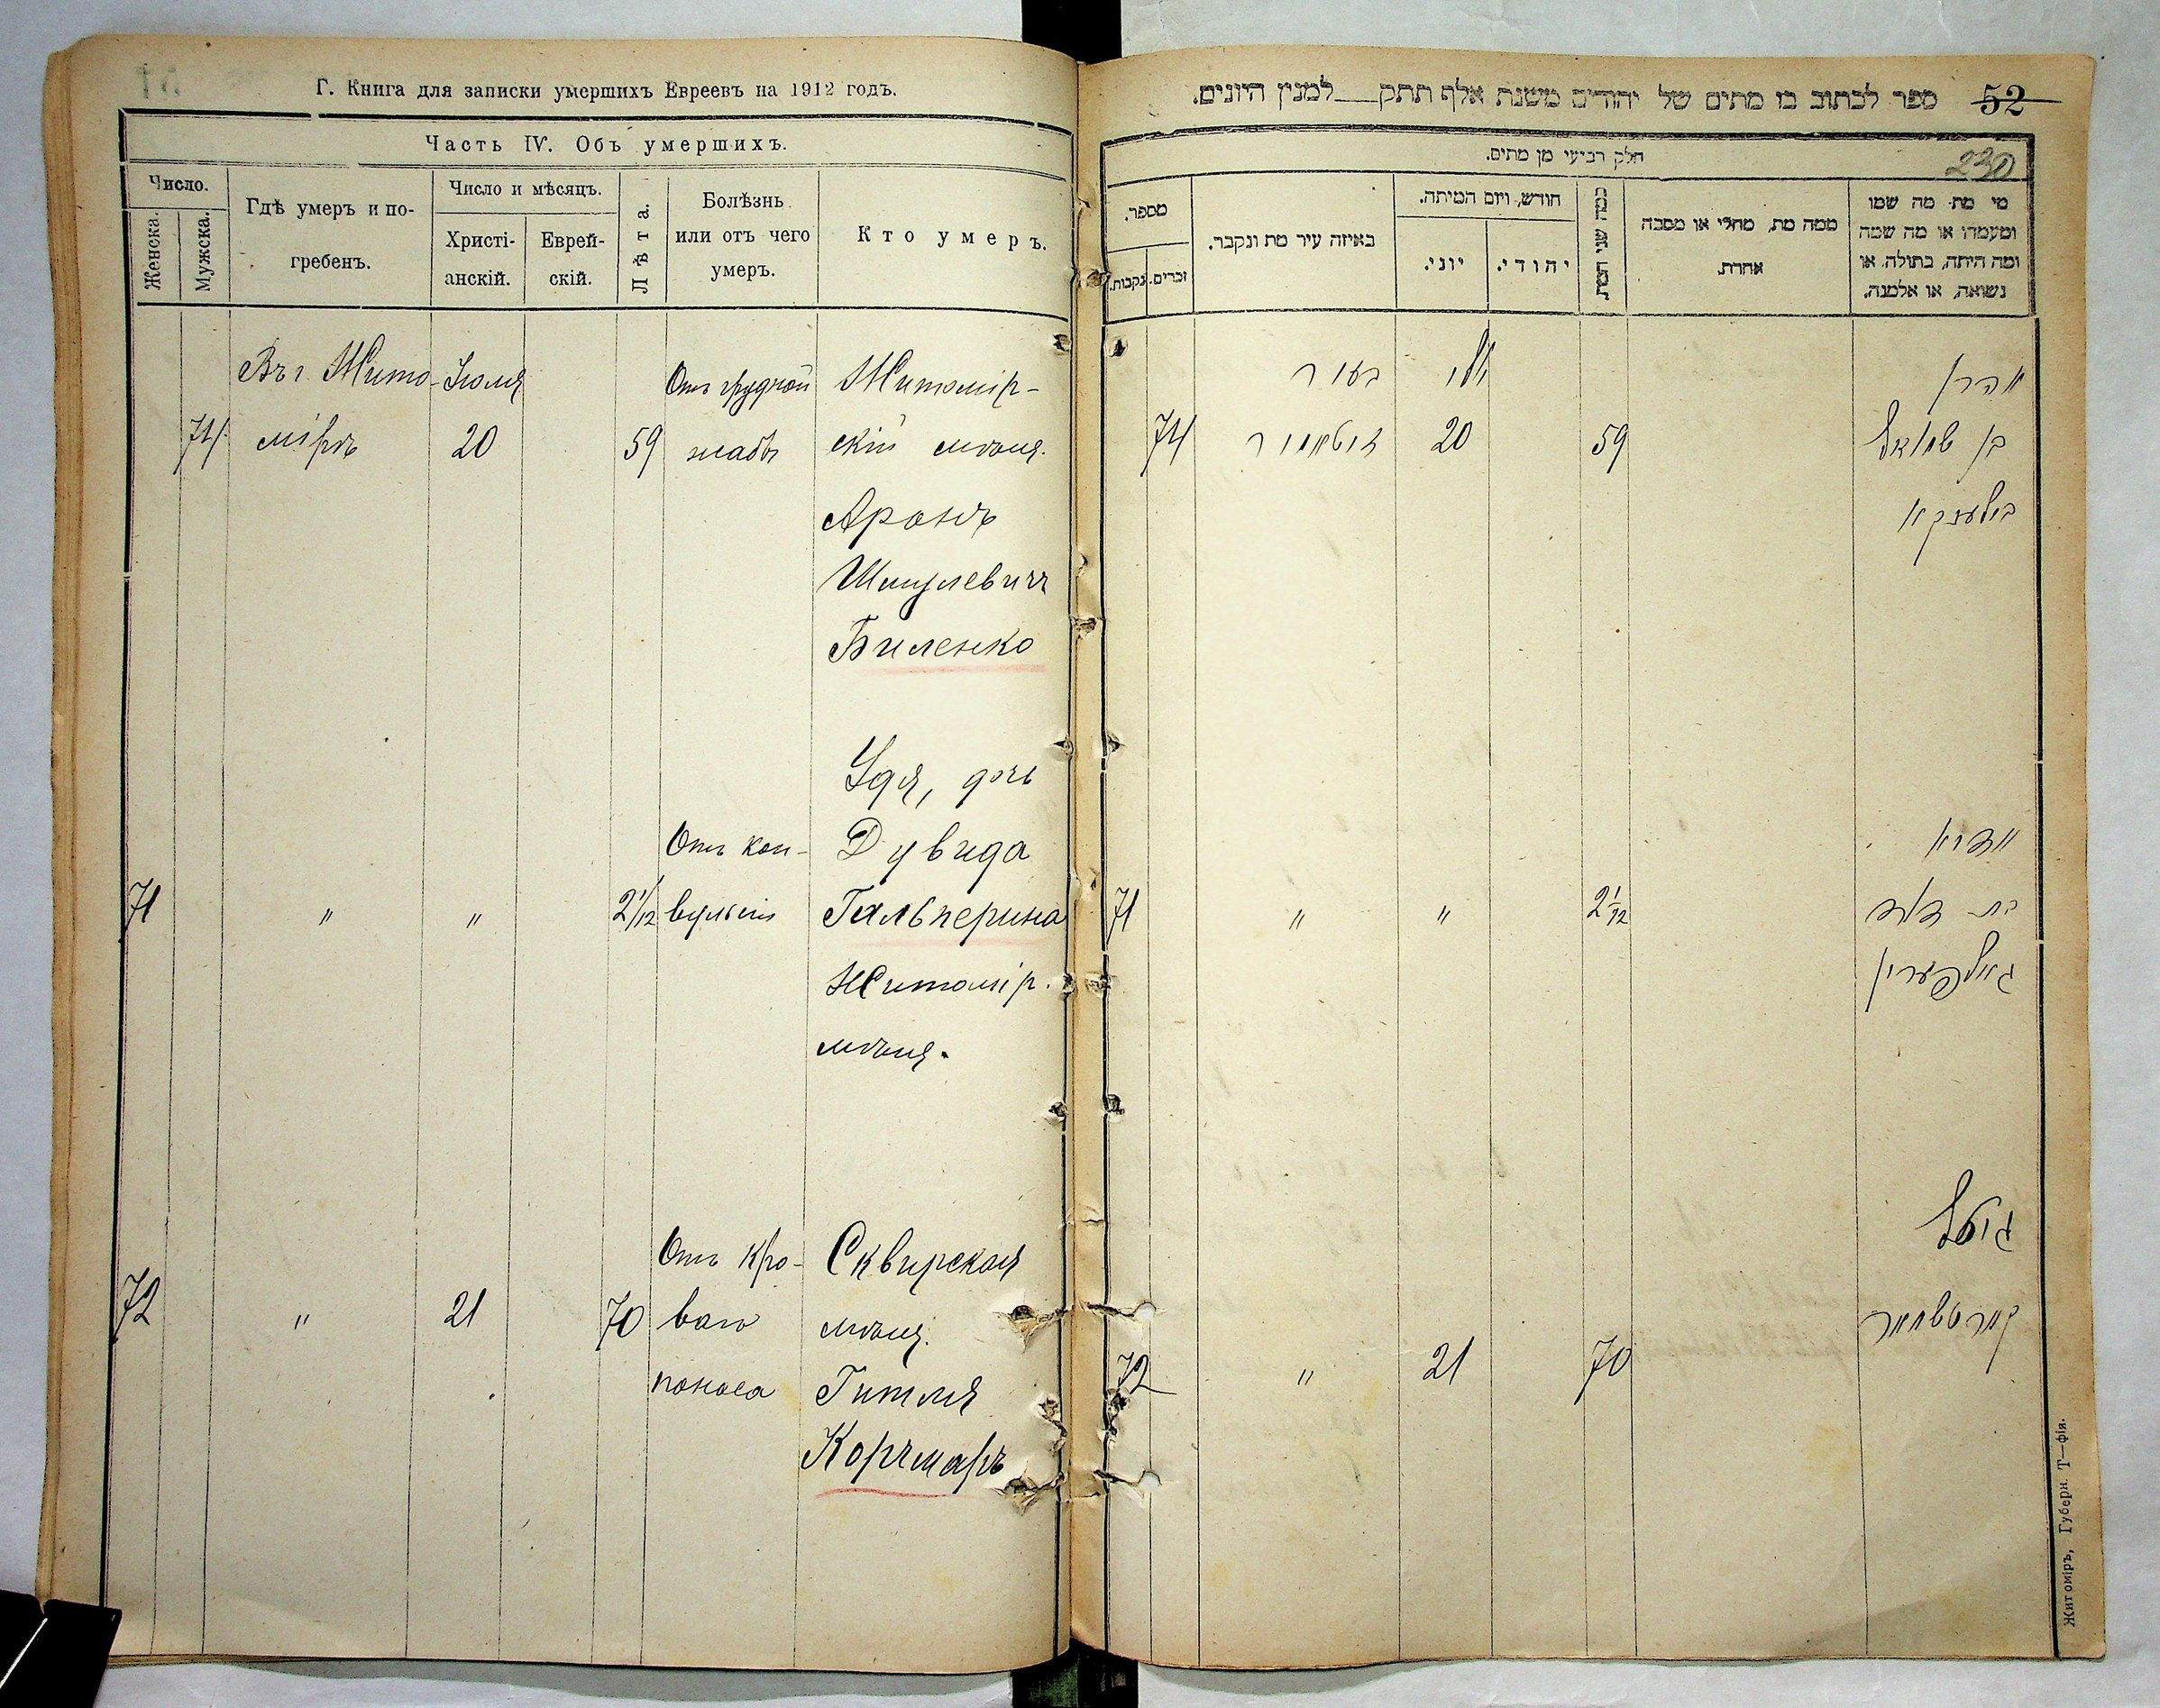 Г. Книга для записки умершихъ Евреевъ на 1912 годъ.
Часть IV. Объ умершихъ.
Число.
Женска.
Мужска.
Гдѣ умеръ и по-
гребенъ.
Число и мѣсяцъ.
Христі-
анскій.
Еврей-
скій.
Лѣта.
Болѣзнь
или отъ чего
умеръ.
Кто умеръ.
Въ г. Жито- Іюля Отъ грудной Житомір-
74 мірѣ 20 59 жабы скій мѣщ.
Аронъ
Шмулевичъ
Биленко
Удя, дочь
Отъ кон- Дувида
71 " " 2 1/12 вульсій Гальперина
Житомір.
мѣщ.
Отъ кро- Сквирская
72 " 21 70 ваго мѣщ.
поноса Гитля
Корчмаръ
ספר לכתוב בו מתים של יהודים משנת אלף תתק למנין היונים.
52
230
חלק רביעי מן מתים.
מספר.
נקבות.
זכרים.
באיזה עיר מת ונקבר.
חודש, ויום המיתה.
יוני.
יהודי.
כמה שני המת
ממה מת, מחלי או מסבה
אחרת.
מי מת מה שמו
ומעמדו או מה שמה
ומה היתה, בתולה או
נשואה, או אלמנה.
בעיר יולי אהרן
74 זיטאמיר 20 59 בן שמואל
בילענקא
אדיא
71 " " 2 1/12 בת דוד
גאלפערין
גיטל
קארטשמאר
72 " 21 70
Житоміръ, Губерн. Т—фія.